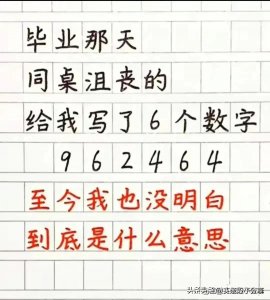 毕业那天
同桌沮丧的
给我写了6个数字
962464
至今我也没明白
到底是什么意思